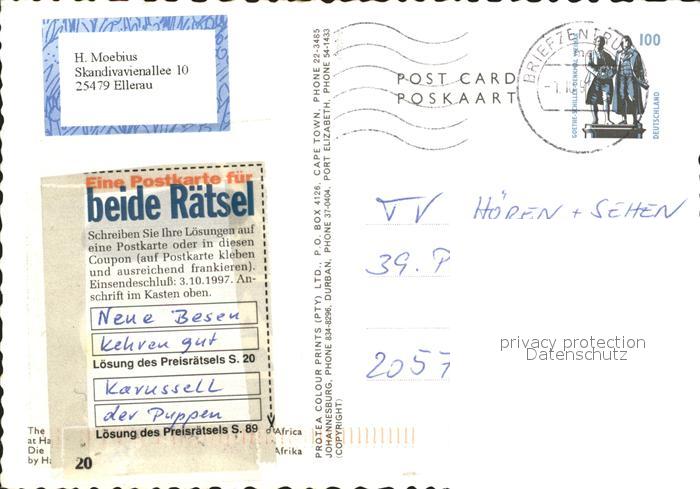 H. Moebius
Skandivavienallee 10
25479 Ellerau
POST CARD
POSKAART
BRIEFZENTRUM
GOETHE-SCHILLER-DENKMAL WEIMAR
100
DEUTSCHLAND
Eine Postkarte für
beide Rätsel
Schreiben Sie Ihre Lösungen auf
eine Postkarte oder in diesen
Coupon (auf Postkarte kleben
und ausreichend frankieren).
Einsendeschluß: 3.10.1997. An-
schrift im Kasten oben.
Neue Besen
kehren gut
Lösung des Preisrätsels S. 20
Karussell
der Puppen
Lösung des Preisrätsels S. 89
20
The
at Ha
Die
by Ha
Africa
Afrika
PROTEA COLOUR PRINTS (PTY) LTD., P.O. BOX 4126, CAPE TOWN, PHONE 22-3485
JOHANNESBURG, PHONE 834-8296, DURBAN, PHONE 37-0404, PORT ELIZABETH, PHONE 54-1433
(COPYRIGHT)
TV HÖREN + SEHEN
39. P
2057
privacy protection
Datenschutz